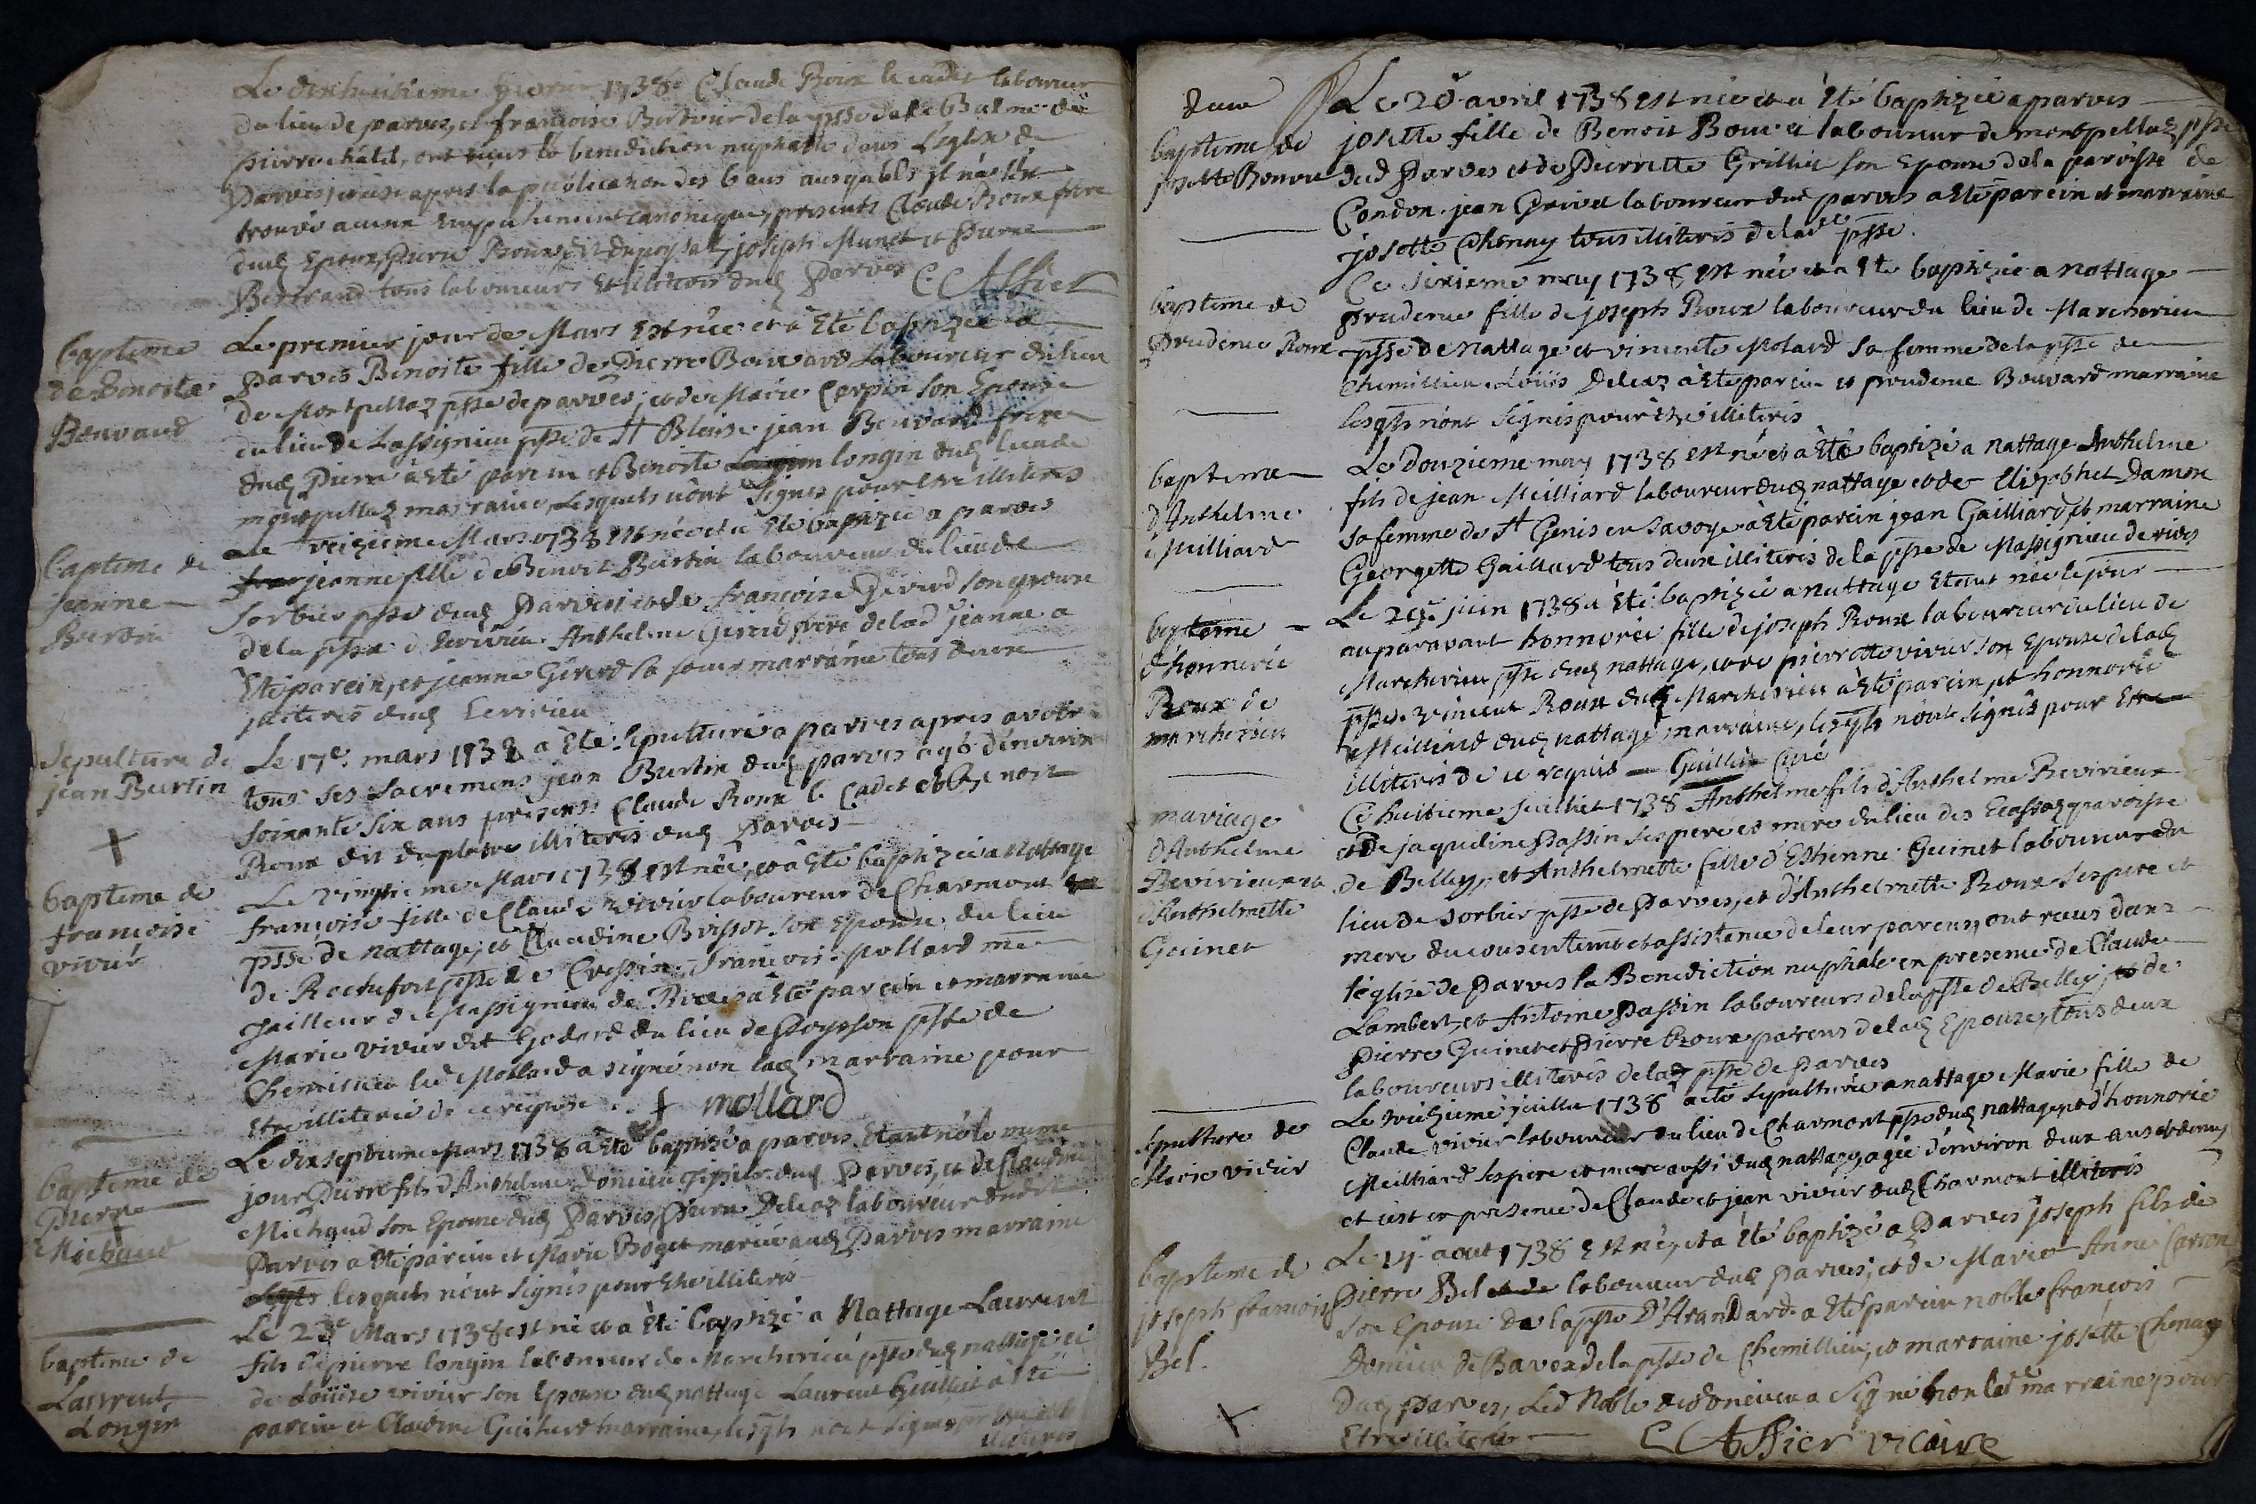 Le dixhuitieme 1738 Claude Roux le cadet laboureur
du lieu de parves, et françoise Bertour de la psse de la Balme de
pierre châtel, ont reçus la benediction nuptialle dans L'eglise de
Parves, apres la publication des bans ausquels il n'a été
trouvé aucun Empechement canonique, presents Claude Roux frere
dud Epoux, Pierre Roux, joseph Munet et Pierre
Bertrand tous laboureurs Et illiteris dud Parves C. Affier
baptême
de Benoite
Bouvard
Le premier jour de Mars Est née et à Eté baptizée a
Parves Benoite fille de Pierre Bouvard Laboureur du lieu
de Montpellaz psse de parves, et de Marie Carpin son Epouse
du lieu de Lassignieu psse de St Blaise jean Bouvard frere
dud Pierre à Eté parein et Benoite longin dud lieu de
montpellaz marraine, Lesquels n'ont Signés pour etre illiteris
baptême de
jeanne
Burtin
Le treizieme Mars 1738 est née et a Eté baptizée a parves
jeanne fille de Benoit Burtin laboureur du lieu de
Sorbier psse dud Parves, et de françoise Girerd son epouse
de la psse d Anthelme Girerd frere de lad jeanne a
Eté parein, et jeanne Girerd sa soeur marraine tous deux
illiteris dud
Sepulture de
jean Burtin
Le 17e mars 1738 à Eté Sepulturé a parves apres avoir
tous ses Sacremens jean Burtin dud parves agé d'environ
soixante six ans presens Claude Roux le Cadet et
Roux dit duplatre illiteris dud Parves
baptême de
francoise
vivier
Le vingtieme Mars 1738 est née, et à Eté baptizée a Nattage
françoise fille de Claude vivier laboureur de Charmont
psse de nattage, et Claudine Brissot son Epouse du lieu
de Rochefort psse de Cressin, François Mollard me
tailleur de Massignieu de Rives à Eté parein et marraine
Marie vivier dit Godard du lieu de Poysson psse de
Chemillieu led Mollard a signé non lad marraine pour
Etre illiterée de ce requise. f mollard
baptême de
Pierre
Michaud
Le dixseptieme Mars 1738 à Eté baptizé a parves Etant né le même
jour Pierre fils d'Anthelme dud Parves, et de Claudine
Michaud son Epouse dud Parves, Pierre Deleaz laboureur dudit
Parves a Eté parein et Marie Boget mariée aud Parves marraine
lesquels n'ont Signés pour Etre illiteris
baptême de
Laurent
Longin
Le 23e Mars 1738 est né et a Eté Baptizé a Nattage Laurent
fils de pierre longin laboureur de Marcherieu psse dud nattage, et
de Loüise vivier son Epouse dud nattage Laurent Guillet à Eté
parein et Claudine marraine, lesqls n'ont signés pr
illiteris
baptême de
josette Bouvier
Le 20 avril 1738 Est née et à Eté baptizée a parves
josette fille de Benoit Bouvier laboureur de montpellaz psse
dud Parves et de Pierrette Grillier son Epouse de la paroisse de
Condon. jean Grivel laboureur dud parves a Eté parein et marraine
josette Chenay tous illiteris de lade psse.
baptême de
prudence Roux
Ce sixieme may 1738 est née et a Ete baptizée a nattage
prudence fille de joseph Roux laboureur du lieu de Marcherieu
psse de Nattage et vincente Molard sa femme de la psse de
Chemillieu. Loüis Deleaz à Eté parein et prudence Bouvard marraine
lesqls n'ont Signés pour être illiteris
baptême
d'Anthelme
Meilliard
Le Douzieme may 1738 est né et à Eté baptizé a nattage Anthelme
fils de jean Meilliard laboureur dud nattage et de Elizabhet Damon
sa femme de St Genis en Savoye à Eté parein jean Gailliard, et marraine
Georgette Gaillard tous deux illiteris de la psse de Massignieu de rives
baptême
d'honnorée
Roux de
marcherieu
Le 29e juin 1738 à Eté baptizée a nattage Etant née le jour
auparavant honnorée fille de joseph Roux laboureur du lieu de
Marcherieu psse dud nattage, et de pierrette vivier son Epouse de lad
psse. vincent Roux dud Marcherieu à Eté parein, et honnorée
Meilliard dud nattage marraine, lesqls n'ont signés pour Etre
illiteris de ce requis — Guillin Curé
mariage
d'Anthelme
Revirieux et
d'Anthelmette
Guinet
Ce huitieme juilliet 1738 Anthelme fils d'Anthelme Revirieux
et de jaqueline Passin ses pere et mere du lieu des Ecassaz paroisse
de Belley, et Anthelmette fille d'Estienne Guinet laboureur du
lieu de Sorbier psse de Parves, et d'Anthelmette Roux ses pere et
mere du consentemt et assistence de leur parens, ont reçus dans
l'église de Parves la Benediction nuphale en presence de Claude
Lambert, et Antoine Passin laboureurs de la psse de Belley, et de
Pierre Guinet et Pierre Roux parens de lad Epouse, tous deux
laboureurs illiteris de lad psse de Parves
sepulture de
Marie vivier
Le treizieme juillet 1738 a eté sepulturée a nattage Marie fille de
Claude vivier laboureur du lieu de Charmont psse dud nattage, et d'honnorée
Meilliard ses pere et mere aussi dud nattage, agée d'environ deux ans et demy
et c'est en presence de Claude et jean vivier dud Charmont illiteris
baptême de
joseph francois
Bel.
Le 14e aout 1738 Est né, et à Eté baptizé a Parves joseph fils de
Pierre Bel laboureur dud parves, et de Marie Anne Carron
son Epouse de la psse D'Arandard a Eté parein noble françois
de la psse de Chemillieu, et marraine josette Chenay
Dud Parves, Led Noble a Signé non lade marraine pour
Etre illiterée — C Affier vicaire